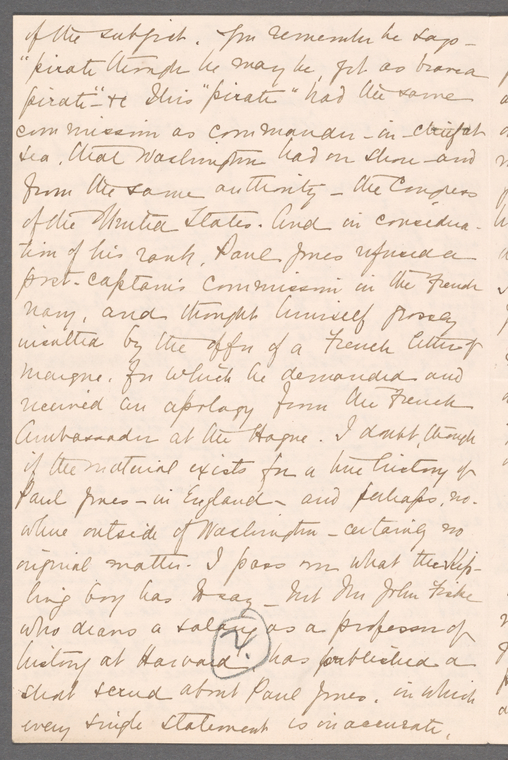 of the subject. You remember he says –
"pirate though he may be, yet as brave a
pirate" – &c This "pirate" had the same
commission as commander-in-chief at
sea, that Washington had on shore – and
from the same authority – the Congress
of the United States. And in considera-
tion of his rank, Paul Jones refused a
post-captain's commission in the French
navy, and thought himself grossly
insulted by the offer of a French letter of
marque. For which he demanded and
received an apology from the French
Ambassador at the Hague. I doubt, though
if the material exists for a true history of
Paul Jones – in England – and perhaps, no-
where outside of Washington – certainly no
original matter. I pass on what the Kip-
ling boy has to say – but Mr John Fiske
who draws a salary as a professor of
history at Harvard has published a
short screed about Paul Jones, in which
every single statement is inaccurate,